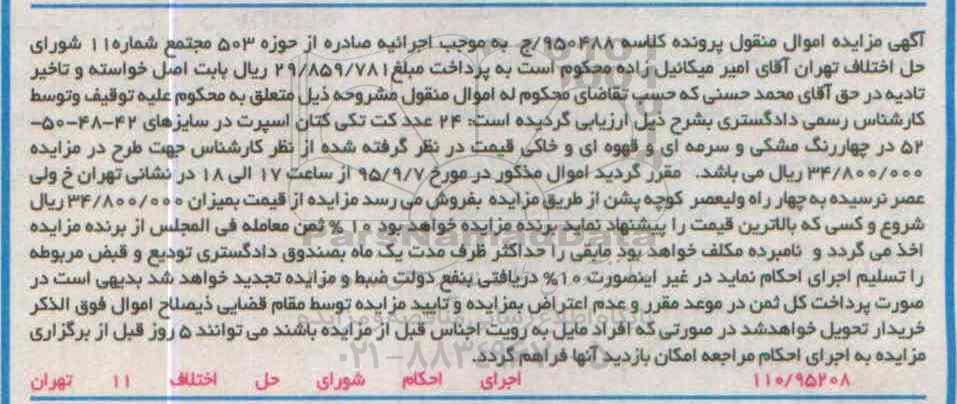 آگهی مزایده اموال منقول پرونده کلاسه ۹۵۰۴۸۸/ج به موجب اجرائیه صادره از حوزه ۵۰۳ مجتمع شماره۱۱ شورای
حل اختلاف تهران آقای امیر میکائیل زاده محکوم است به پرداخت مبلغ۲۹/۸۵۹/۷۸۱ ریال بابت اصل خواسته و تاخیر
تادیه در حق آقای محمد حسنی که حسب تقاضای محکوم له اموال منقول مشروحه ذیل متعلق به محکوم علیه توقیف وتوسط
کارشناس رسمی دادگستری بشرح ذیل ارزیابی گردیده است: ۲۴ عدد کت تکی کتان اسپرت در سایزهای ۴۲-۴۸-۵۰-
۵۲ در چهاررنگ مشکی و سرمه ای و قهوه ای و خاکی قیمت در نظر گرفته شده از نظر کارشناس جهت طرح در مزایده
۳۴/۸۰۰/۰۰۰ ریال می باشد. مقرر گردید اموال مذکور در مورخ ۹۵/۹/۷ از ساعت ۱۷ الی ۱۸ در نشانی تهران خ ولی
عصر نرسیده به چهار راه ولیعصر کوچه پشن از طریق مزایده بفروش می رسد مزایده از قیمت بمیزان ۳۴/۸۰۰/۰۰۰ ریال
شروع و کسی که بالاترین قیمت را پیشنهاد نماید برنده مزایده خواهد بود ۱۰ % ثمن معامله فی المجلس از برنده مزایده
اخذ می گردد و نامبرده مکلف خواهد بود مابقی را حداکثر ظرف مدت یک ماه بصندوق دادگستری تودیع و قبض مربوطه
را تسلیم اجرای احکام نماید در غیر اینصورت ۱۰% دریافتی بنفع دولت ضبط و مزایده تجدید خواهد شد بدیهی است در
صورت پرداخت کل ثمن در موعد مقرر و عدم اعتراض بمزایده و تایید مزایده توسط مقام قضایی ذیصلاح اموال فوق الذکر
خریدار تحویل خواهدشد در صورتی که افراد مایل به رویت اجناس قبل از مزایده باشند می توانند ۵ روز قبل از برگزاری
مزایده به اجرای احکام مراجعه امکان بازدید آنها فراهم گردد.
۱۱۰/۹۵۲۰۸ اجرای احکام شورای حل اختلاف ۱۱ تهران
ParsNamadData